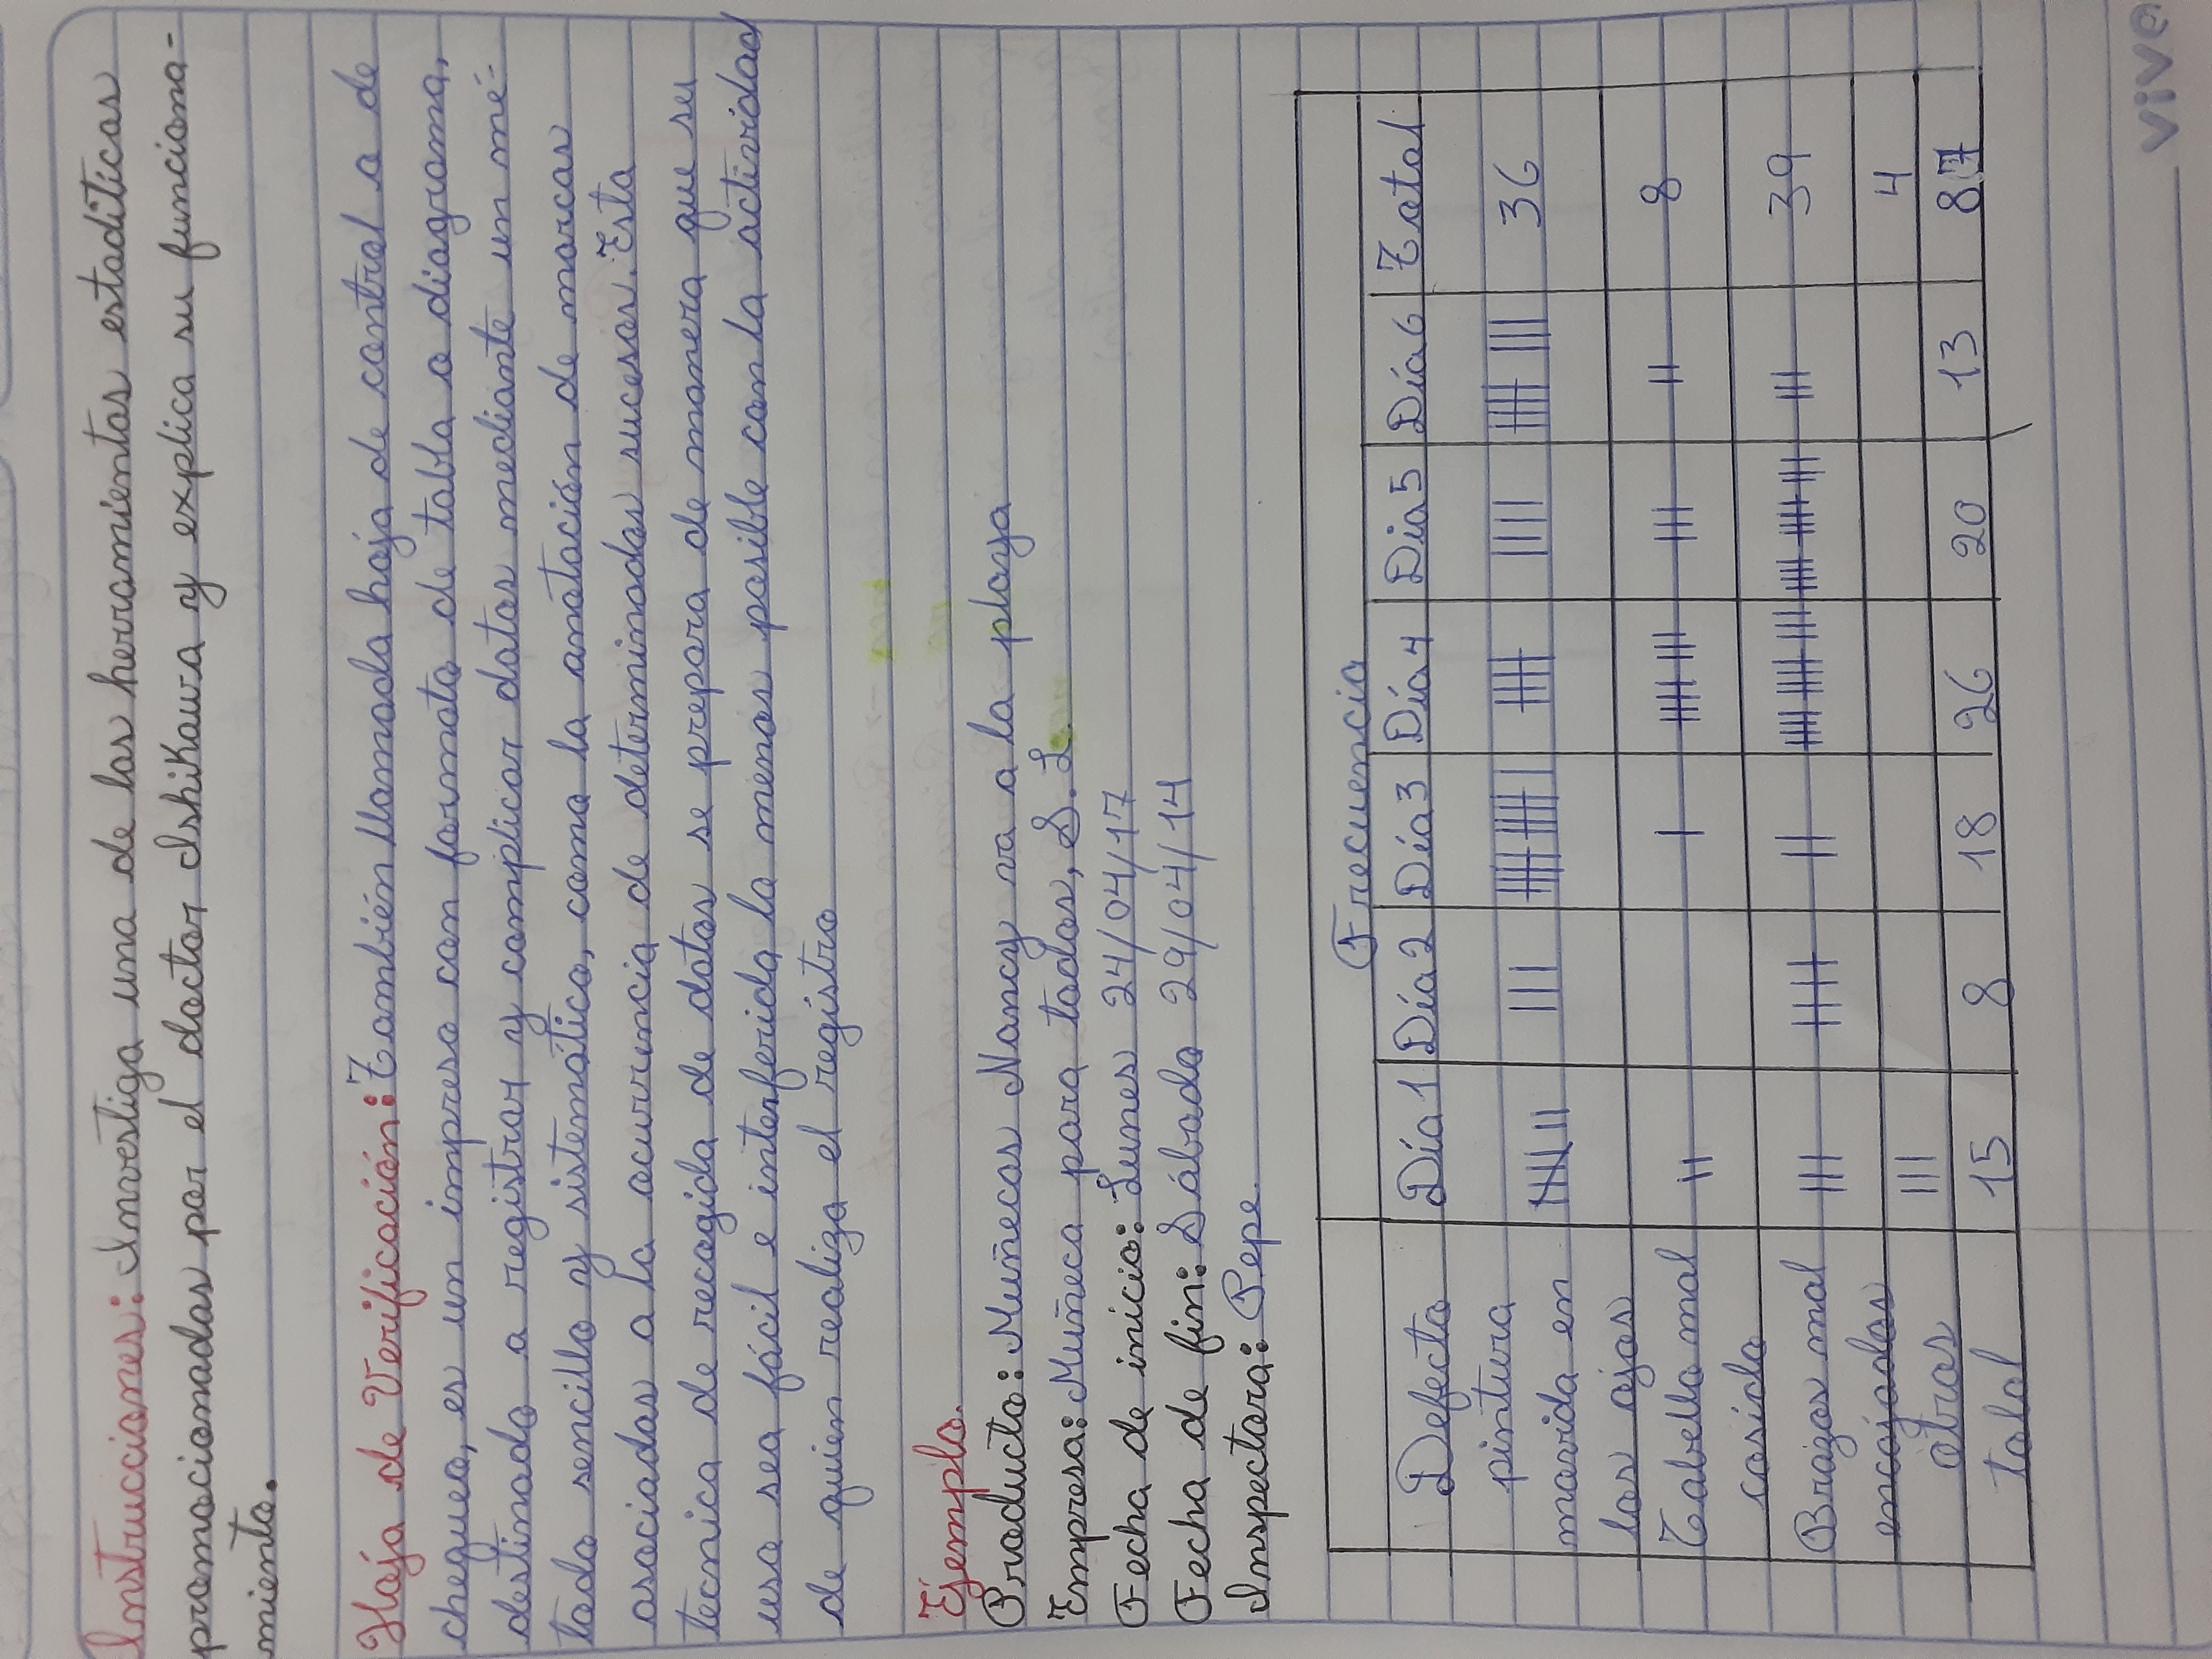 Instrucciones: Investiga una de las herramientas estadíticas
promocionadas por el doctor Ishikawa y explica su funciona-
miento.
Hoja de Verificación: También llamada hoja de control o de
chequeo, es un impreso con formato de tabla o diagrama,
destinado a registrar y complicar datos mediante un mé-
todo sencillo y sistemático, como la anotación de marcas
asociadas a la ocurrencia de determinados sucesos. Esta
tecnica de recogida de datos se prepara de manera que su
uso sea fácil e interferida lo menos posible con la actividad
de quien realiza el registro
Ejemplo.
Producto: Muñecas Nancy va a la playa
Empresa: Muñeca para todos, S. L
Fecha de inicio: Lunes 24/04/17
Fecha de fin: Sábado 29/04/14
Inspectora: Pepe.
Frecuencia
Defecto Día 1 Día 2 Día 3 Día 4 Dia 5 Día 6 Total
pintura
movida en 36
los ojos
Cabello mal 8
cosido
Brazos mal 39
encajados
otros 4
total 15 8 18 26 20 13 87
viva